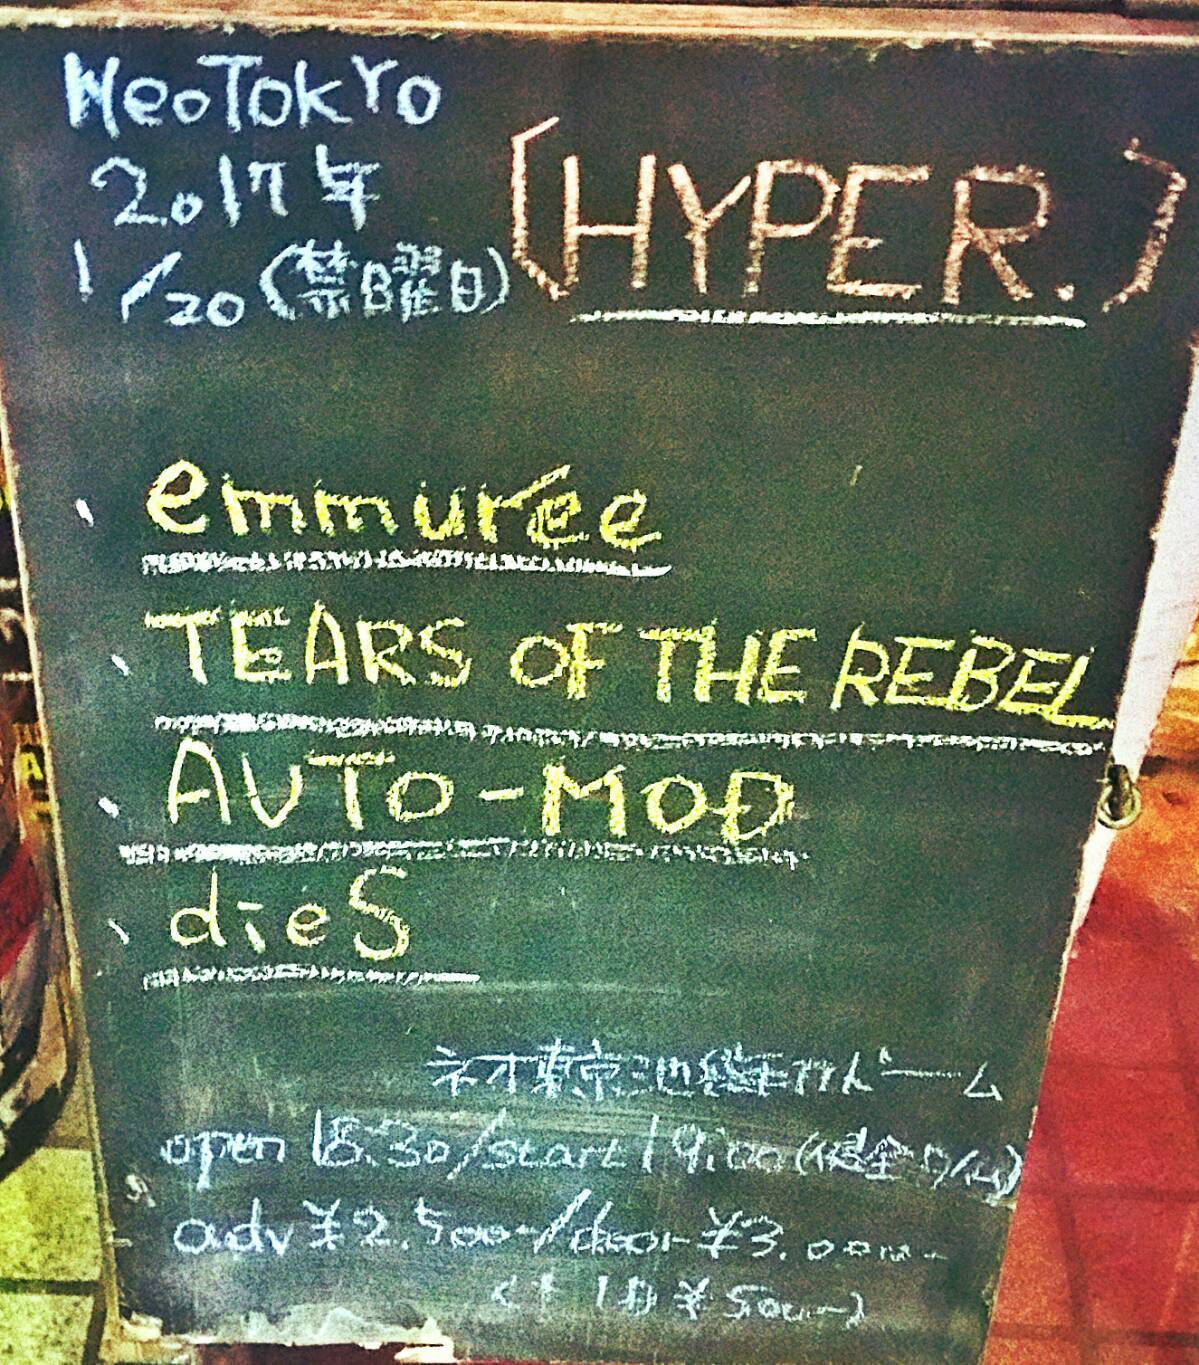 NeoTokyo
2.017年
1/20(禁日曜日)
(HYPER.)
、emmuree
、TEARS OF THE REBEL
、AUTO-MOD
、dieS
ネオ東京池袋手刀ドーム
open 18:30/start 19:00
adv ¥2.500-/door ¥3.000-
¥500-)